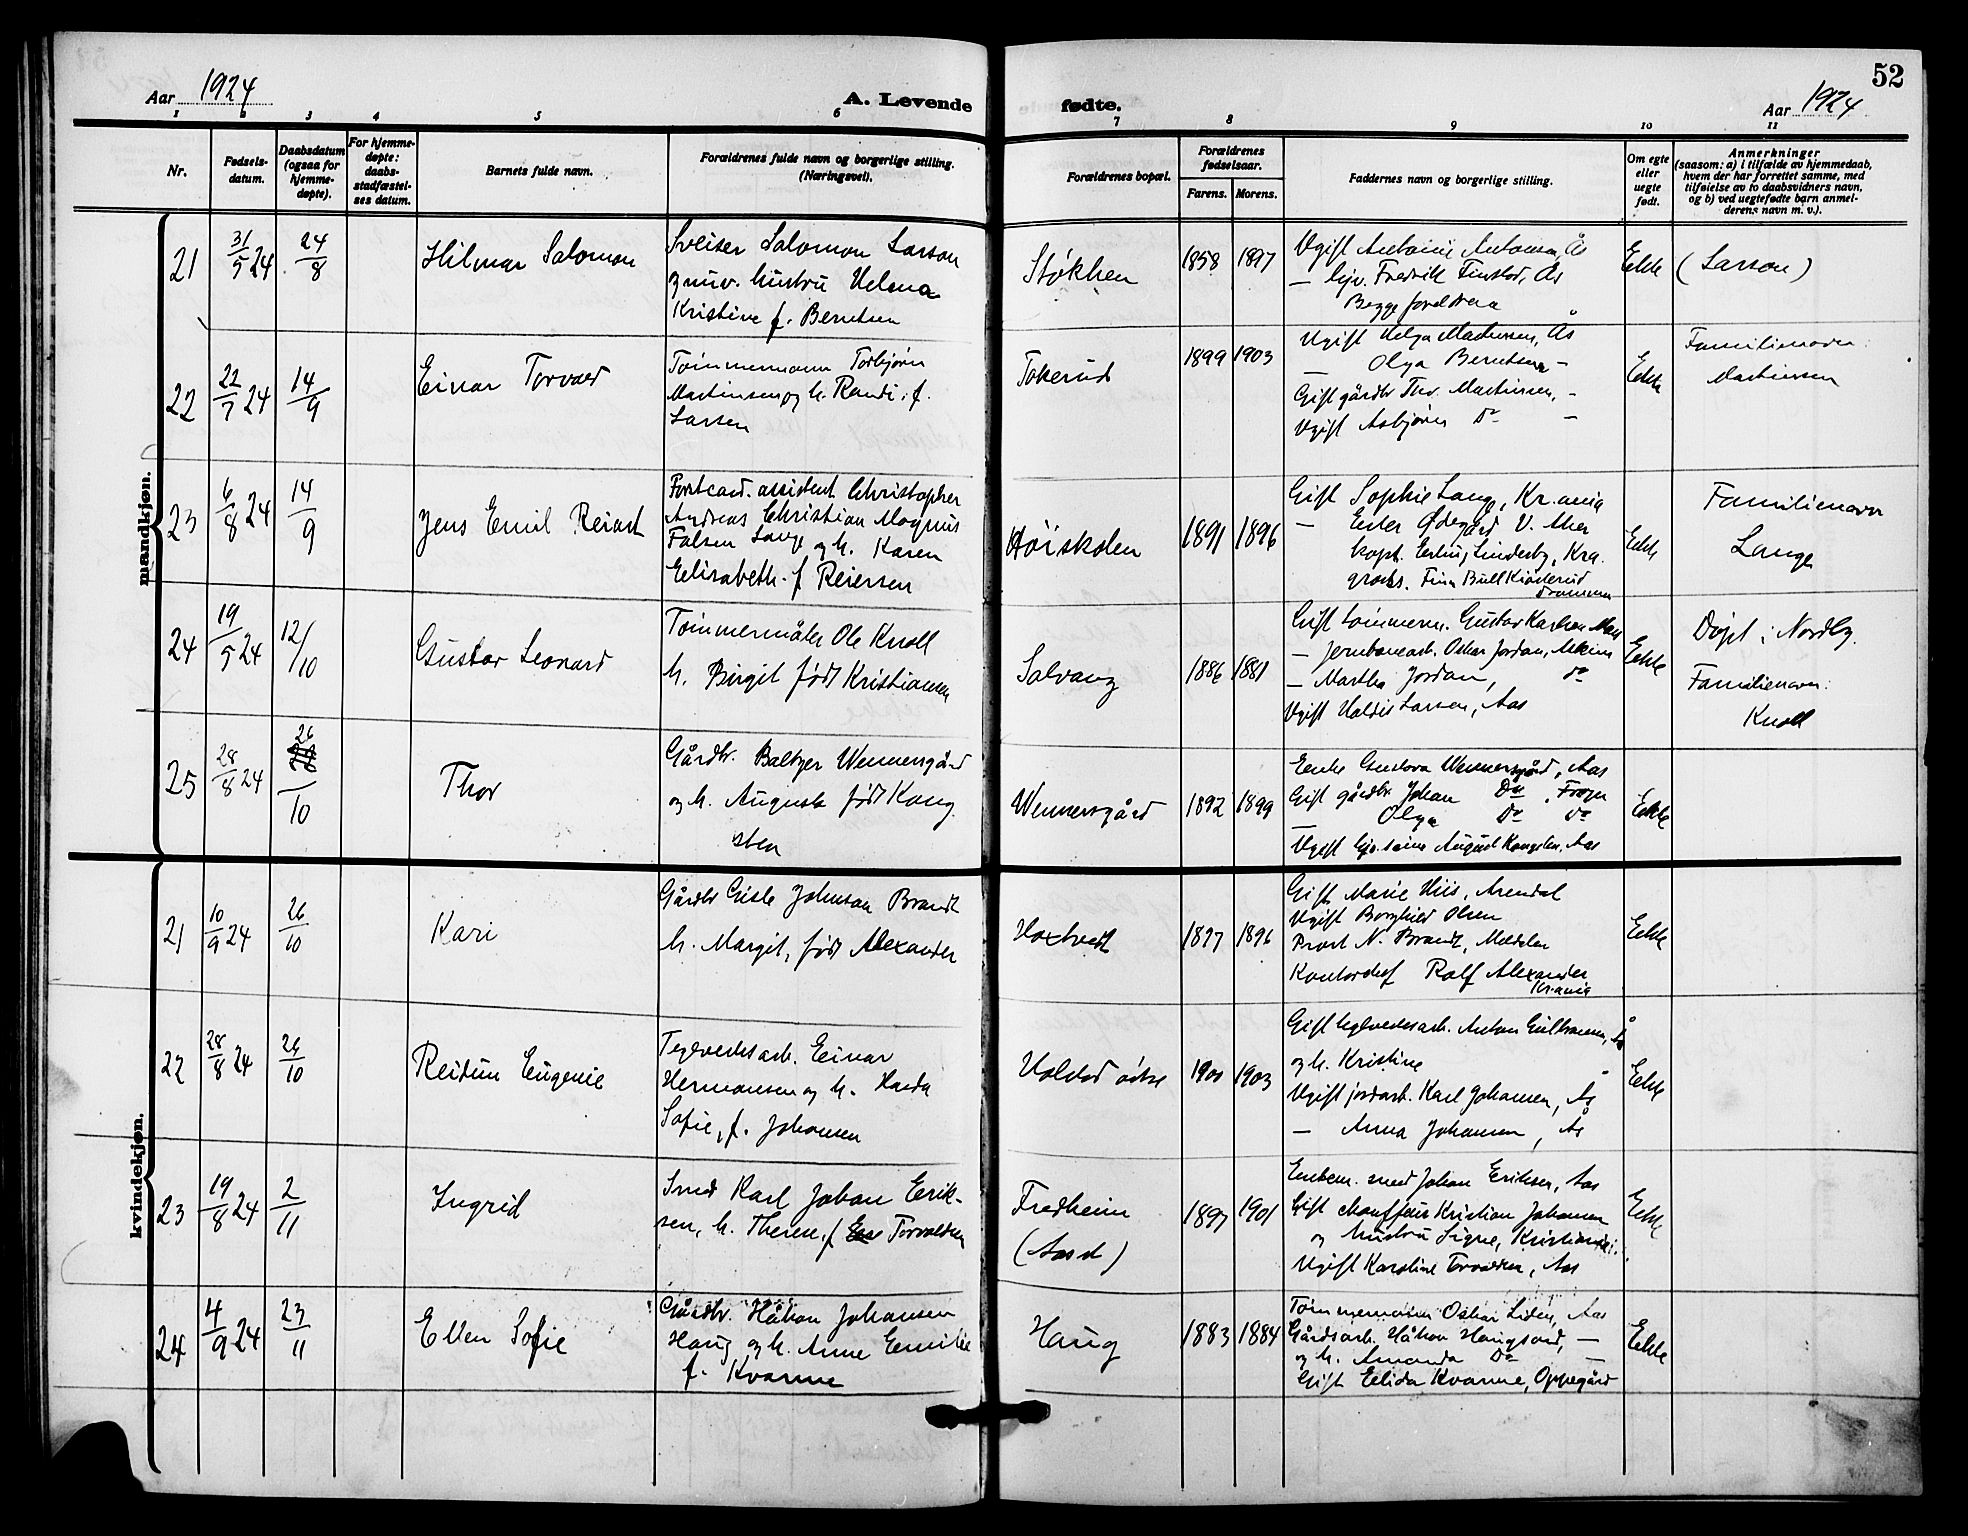 52
Aar 1924
A. Levende fødte.
Aar 1924
1 2 3 4 5 6 7 8 9 10 11
Nr.
Fødsels-
datum.
Daabsdatum
(ogsaa for
hjemme-
døpte).
For hjemme-
døpte:
daabs-
stadfæstel-
ses datum.
Barnets fulde navn.
Forældrenes fulde navn og borgerlige stilling.
(Næringsvei).
Forældrenes bopæl.
Forældrenes
fødselsaar.
Farens. Morens.
Faddernes navn og borgerlige stilling.
Om egte
eller
uegte
født.
Anmerkninger
(saasom: a) i tilfælde av hjemmedaab,
hvem der har forrettet samme, med
tilføielse av to daabsvidners navn,
og b) ved uegtefødte barn anmel-
derens navn m. v.).
mandkjøn.
21
31/5 24
24/8
Hilmar Salomon
Sveiser Salomon Larson
og hustru Helena
Kristine f. Berntsen
Støkken
1858 1897
Ugift Antonie Antonsen, Ås
— Fredrik Finstad, Ås
Begge foreldrene
Ekte
(Larson)
22
22/7 24
14/9
Einar Torvald
Tømmermann Torbjørn
Martinsen og h. Randi, f.
Larsen
Tokerud
1899 1903
Ugift Helga Martinsen, Ås
— Olga Berntsen —
Gift gårdbr. Thv. Martinsen, —
Ugift Asbjørn Do —
Ekte
Familienavn:
Martinsen
23
6/8 24
14/9
Jens Emil Reiart
Forstcand. assistent Christopher
Andreas Christian Magnus
Falsen Lange og h. Karen
Elisabeth f. Reiersen
Høiskolen
1891 1896
Gift Sophie Lange, Kr.ania
— Ester Ødegård V. Aker
kapt. Erling Linderby, Kra.
gross. Finn Bull Kiøsterud
Drammen
Ekte
Familienavn
Lange
24
19/5 24
12/10
Gustav Leonard
Tømmermåler Ole Knoll
h. Birgit født Kristiansen
Solvang
1886 1881
Gift tømmerm. Gustav Karlsen
— Jernbanearb. Oskar Jordan, Askim
— Martha Jordan, do
Ugift Haldis Larsen, Aas
Ekte
Døpt i Nordby.
Familienavn:
Knoll
25
28/8 24
26/10
Thor
Gårdbr. Baltzer Wennersgård
og h. Augusta født Kong
sten
Wennersgård
1892 1899
Enke Gustava Wennersgård, Aas
Gift gårdbr. Johan Do, Frogn
— Olga Do do
Ugift August Kongsten, Aas
Ekte
kvindekjøn.
21
10/9 24
26/10
Kari
Gårdbr Gisle Johnson Brandt
h. Margit, født Alexander
Hoxtvedt
1897 1896
Gift Marie Hiis, Arendal
Ugift Borghild Olsen
Prost N. Brandt, Meldalen
Kontorchef Rolf Alexander
Kr.ania
Ekte
22
28/8 24
26/10
Reidun Eugenie
Teglverksarb. Einar
Hermansen og h. Harda
Sofie, f. Johansen
Holstad østre
1900 1903
Gift teglverksarb. Anton Gulbransen, Ås
og h. Kristine
Ugift jordarb. Karl Johansen, Ås
— Anna Johansen, Ås
Ekte
23
19/8 24
2/11
Ingrid
Smed Karl Johan Erik-
sen, h. Therese, f. Torvaldsen
Fredheim
(Aas st)
1897 1901
Enkem. smed Johan Eriksen, Aas
Gift chauffeur Kristian Johansen
og hustru Signe, Kristiania.
Ugift Karoline Torvaldsen, Aas
Ekte
24
4/9 24
23/11
Ellen Sofie
Gårdbr. Håkon Johansen
Haug og h. Anne Emilie
f. Kvarme
Haug
1883 1884
Tømmermann Oskar Liden, Aas
Gårdsarb. Håkon Haugsand, —
og h. Amanda Do —
Gift Elida Kvarme, Oppegård
Ekte